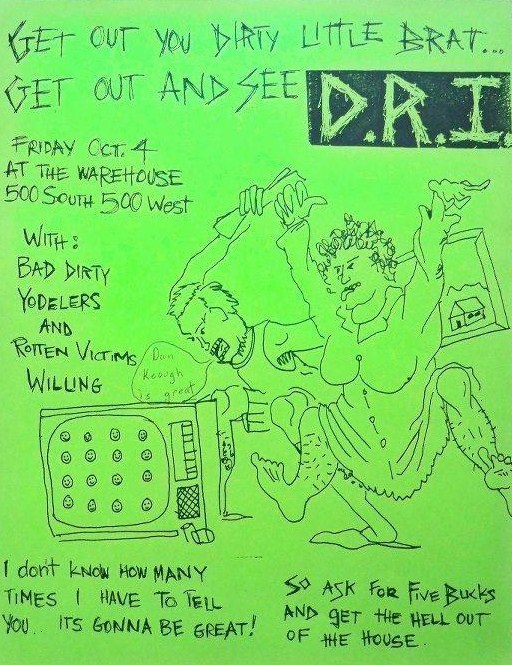 GET OUT YOU DIRTY LITTLE BRAT...
GET OUT AND SEE D.R.I.
FRIDAY OCT. 4
AT THE WAREHOUSE
500 SOUTH 500 West
WITH:
BAD DIRTY
YODELERS
AND
ROTTEN VICTIMS
WILLING
Dan
Keough
is great
I don't KNOW HOW MANY
TIMES I HAVE TO TELL
YOU.. ITS GONNA BE GREAT!
SO ASK FOR FIVE BUCKS
AND GET THE HELL OUT
OF THE HOUSE.